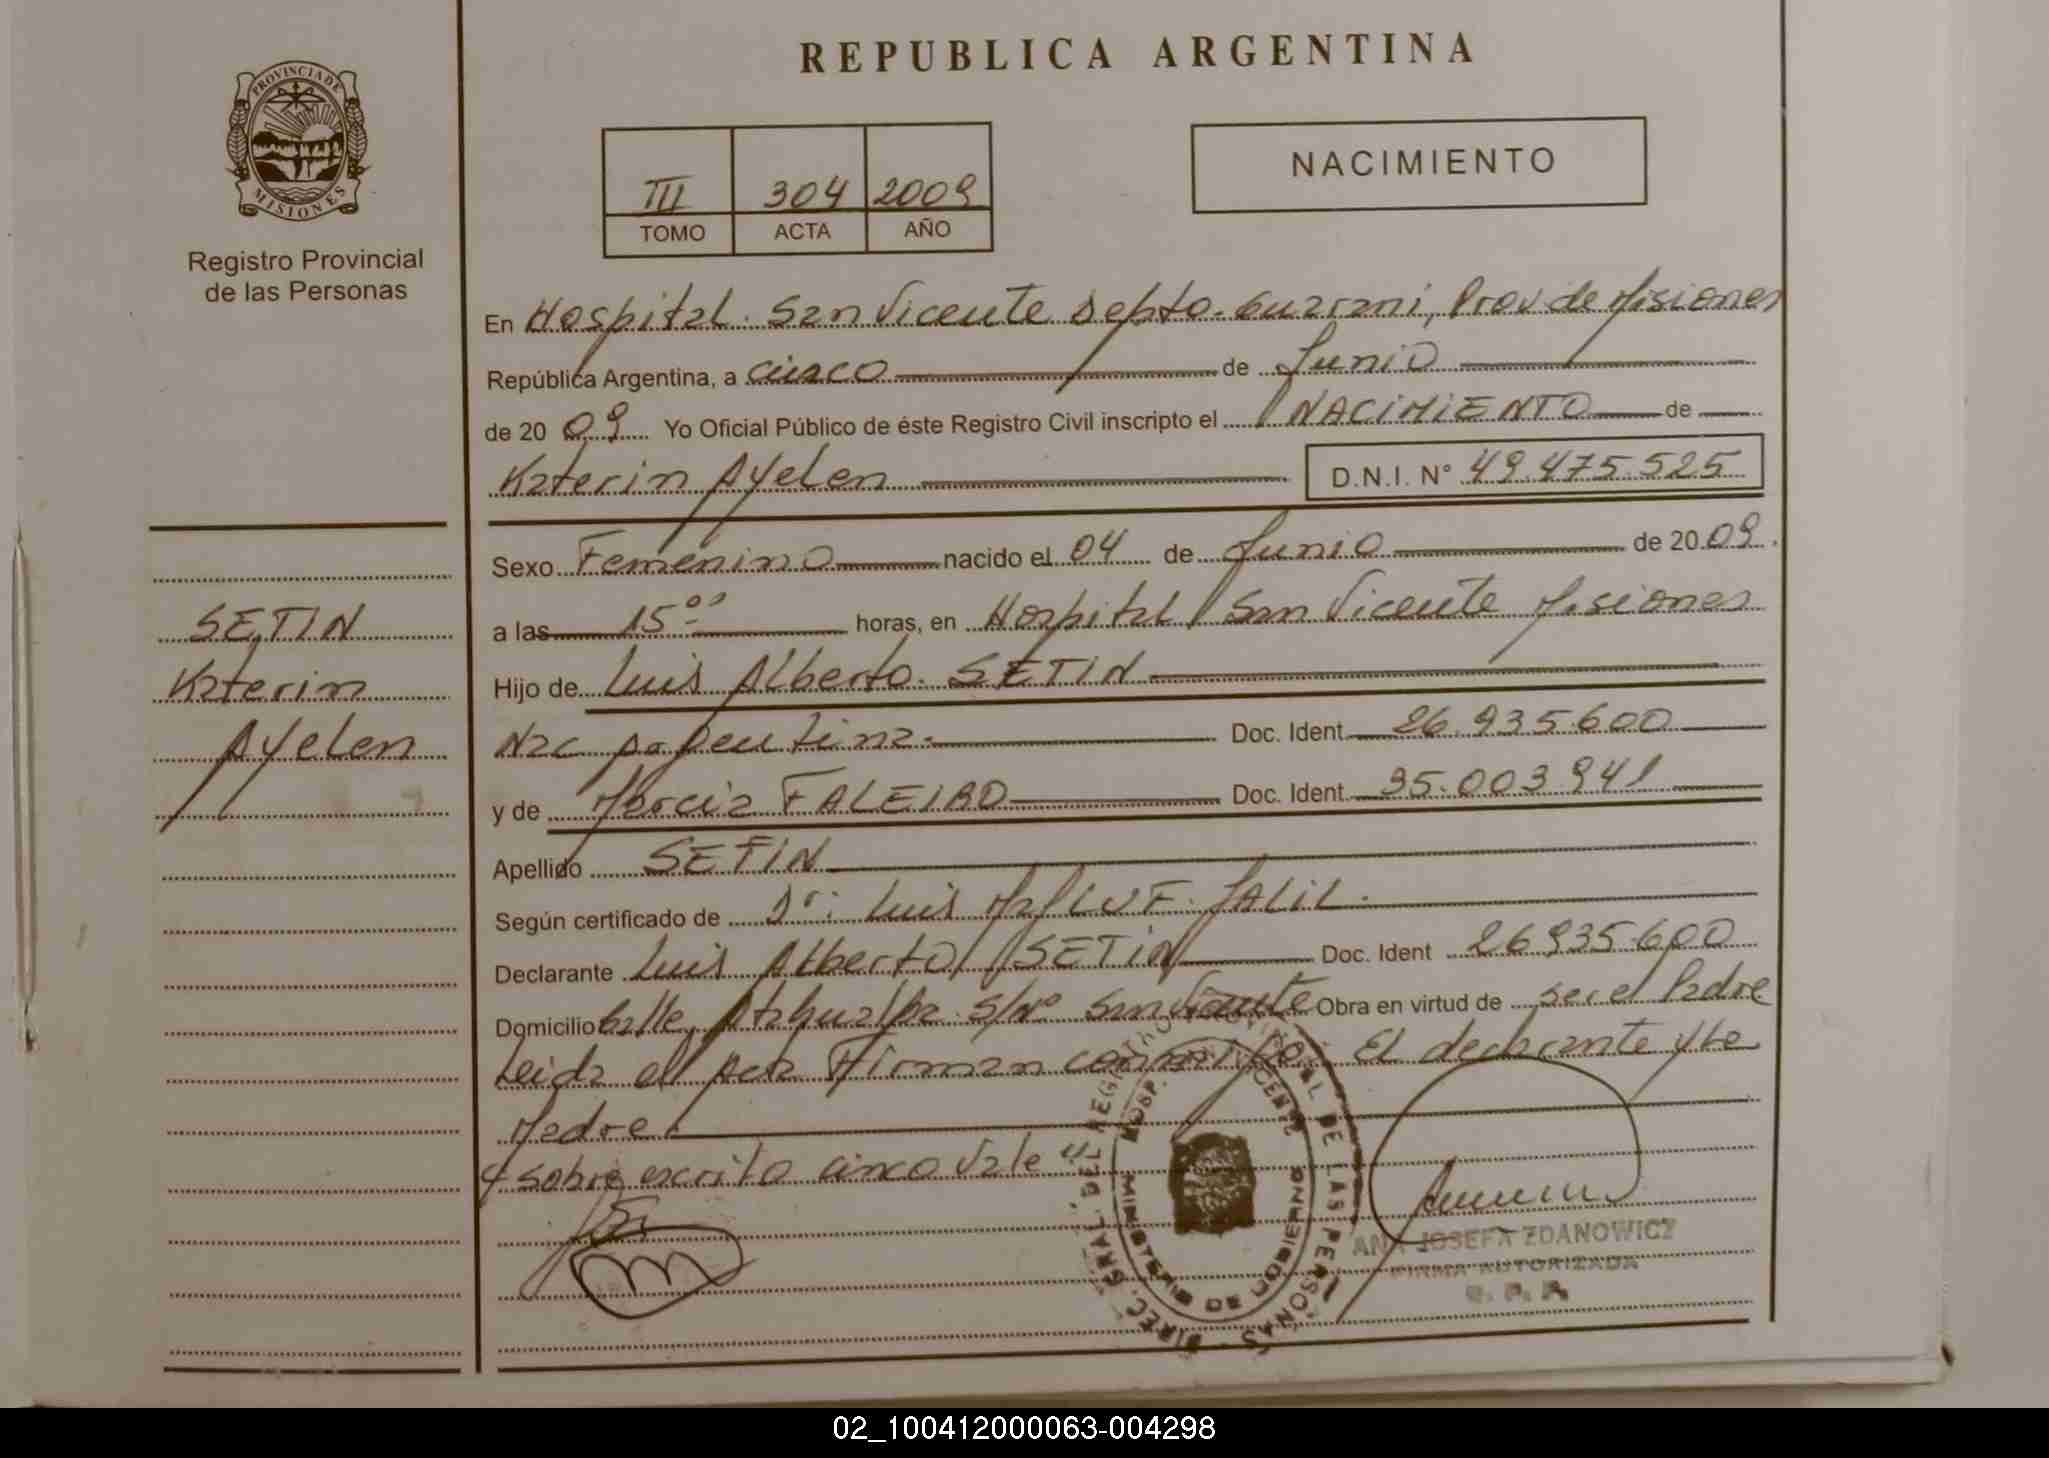 REPUBLICA ARGENTINA
PROVINCIA DE
MISIONES
Registro Provincial
de las Personas
III 304 2009
TOMO ACTA AÑO
NACIMIENTO
En Hospital San Vicente Depto. Guarani, Prov de Misiones
República Argentina, a cinco de Junio
de 2009 Yo Oficial Público de éste Registro Civil inscripto el NACIMIENTO de
Katerin Ayelen D.N.I. N° 49.475.525
Sexo Femenino nacido el 04 de Junio de 2009.
a las 15°° horas, en Hospital San Vicente Misiones
Hijo de Luis Alberto SETIN
Nac Argentina. Doc. Ident 26.935.600
y de Marcia FALEIRO Doc. Ident 35.003.941
Apellido SETIN
Según certificado de Dr: Luis JALIL.
Declarante Luis Alberto SETIN Doc. Ident 26935.600
Domicilio Calle Atahualpa S/N° San Vicente Obra en virtud de ser el Padre
Leida el Acta Firman conmigo El declarante y La
Madre.
sobre escrito cinco Vale "
SETIN
Katerin
Ayelen
DIREC. GRAL. DEL REGISTRO PROVINCIAL DE LAS PERSONAS
HOSP. VICENTE
MINISTERIO DE GOBIERNO
ANA JOSEFA ZDANOWICZ
FIRMA AUTORIZADA
R. P. P.
02_100412000063-004298